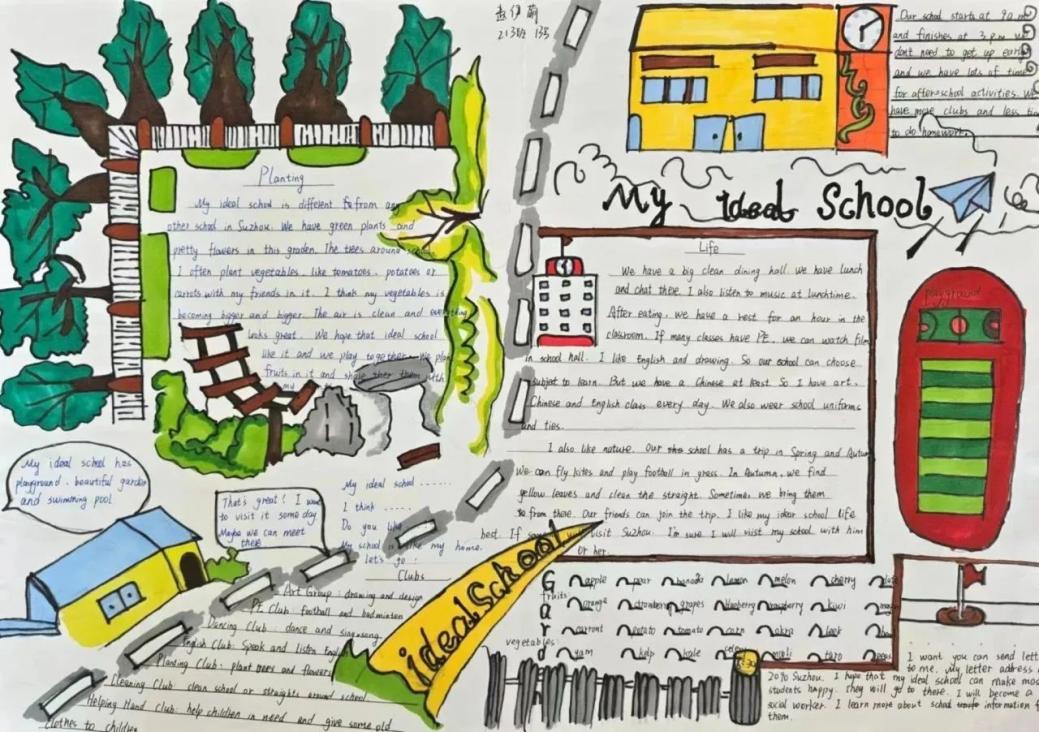 213班 13号
Our school starts at 9a.m
and finishes at 3.p.m we
don't need to get up early
and we have lots of time
for after-school activities. We
have more clubs and less
to do homework.
My ideal School
Planting
My ideal school is different from
other school in Suzhou. We have green plants and
pretty flowers in this graden. The trees around
I often plant vegetables, like tomatoes, potatoes or
carrots with my friends in it. I think my vegetables is
becoming bigger and bigger. The air is clean and everything
looks great. We hope that ideal school
like it and we play together. We plan
fruits in it and share them with
my
Life
We have a big clean dining hall. we have lunch
and chat there. I also listen to music at lunchtime.
After eating, we have a rest for an hour in the
classroom. If many classes have PE, we can watch film
in school hall. I like English and drawing. So our school can choose
subject to learn. But we have a Chinese at least. So I have art,
Chinese and English class every day. We also wear school uniforms
and ties.
I also like nature. Our school has a trip in Spring and Autum
We can fly kites and play football in grass. In Autumn, we find
yellow leaves and clean the straight. Sometime, we bring them
to from there. Our friends can join the trip. I like my ideor school life
best. If visit Suzhou. I'm sure I will visit my school with him
or her.
playground
My ideal school has
playground, beautiful garden
and swimming pool.
That's great! I want
to visit it some day
Maybe we can meet
there
My ideal school ......
I think .....
Do you like
My school is like my home.
let's go:
Clubs
Art Group: drawing and design
PE Club: football and badminton
Dancing Club: dance and sing song
English Club: Speak and listen English
Planting Club: plant trees and flowers
Cleaning Club: clean school or straights around school
Helping Hand Club: help children in need and give some old
clothes to children
ideal School
fruits
apple pear banada lemon melon cherry
orange strawberry grapes blueberry raspberry kiwi
vegetables
carrout potato tomato corn okra leek
yam kelp kale celery taro peas
I want you can send lett
to me. My letter address
20% Suzhou. I hope that my ideal school can make mos
students happy. They will go to there. I will become a
social worker. I learn more about school information
them.